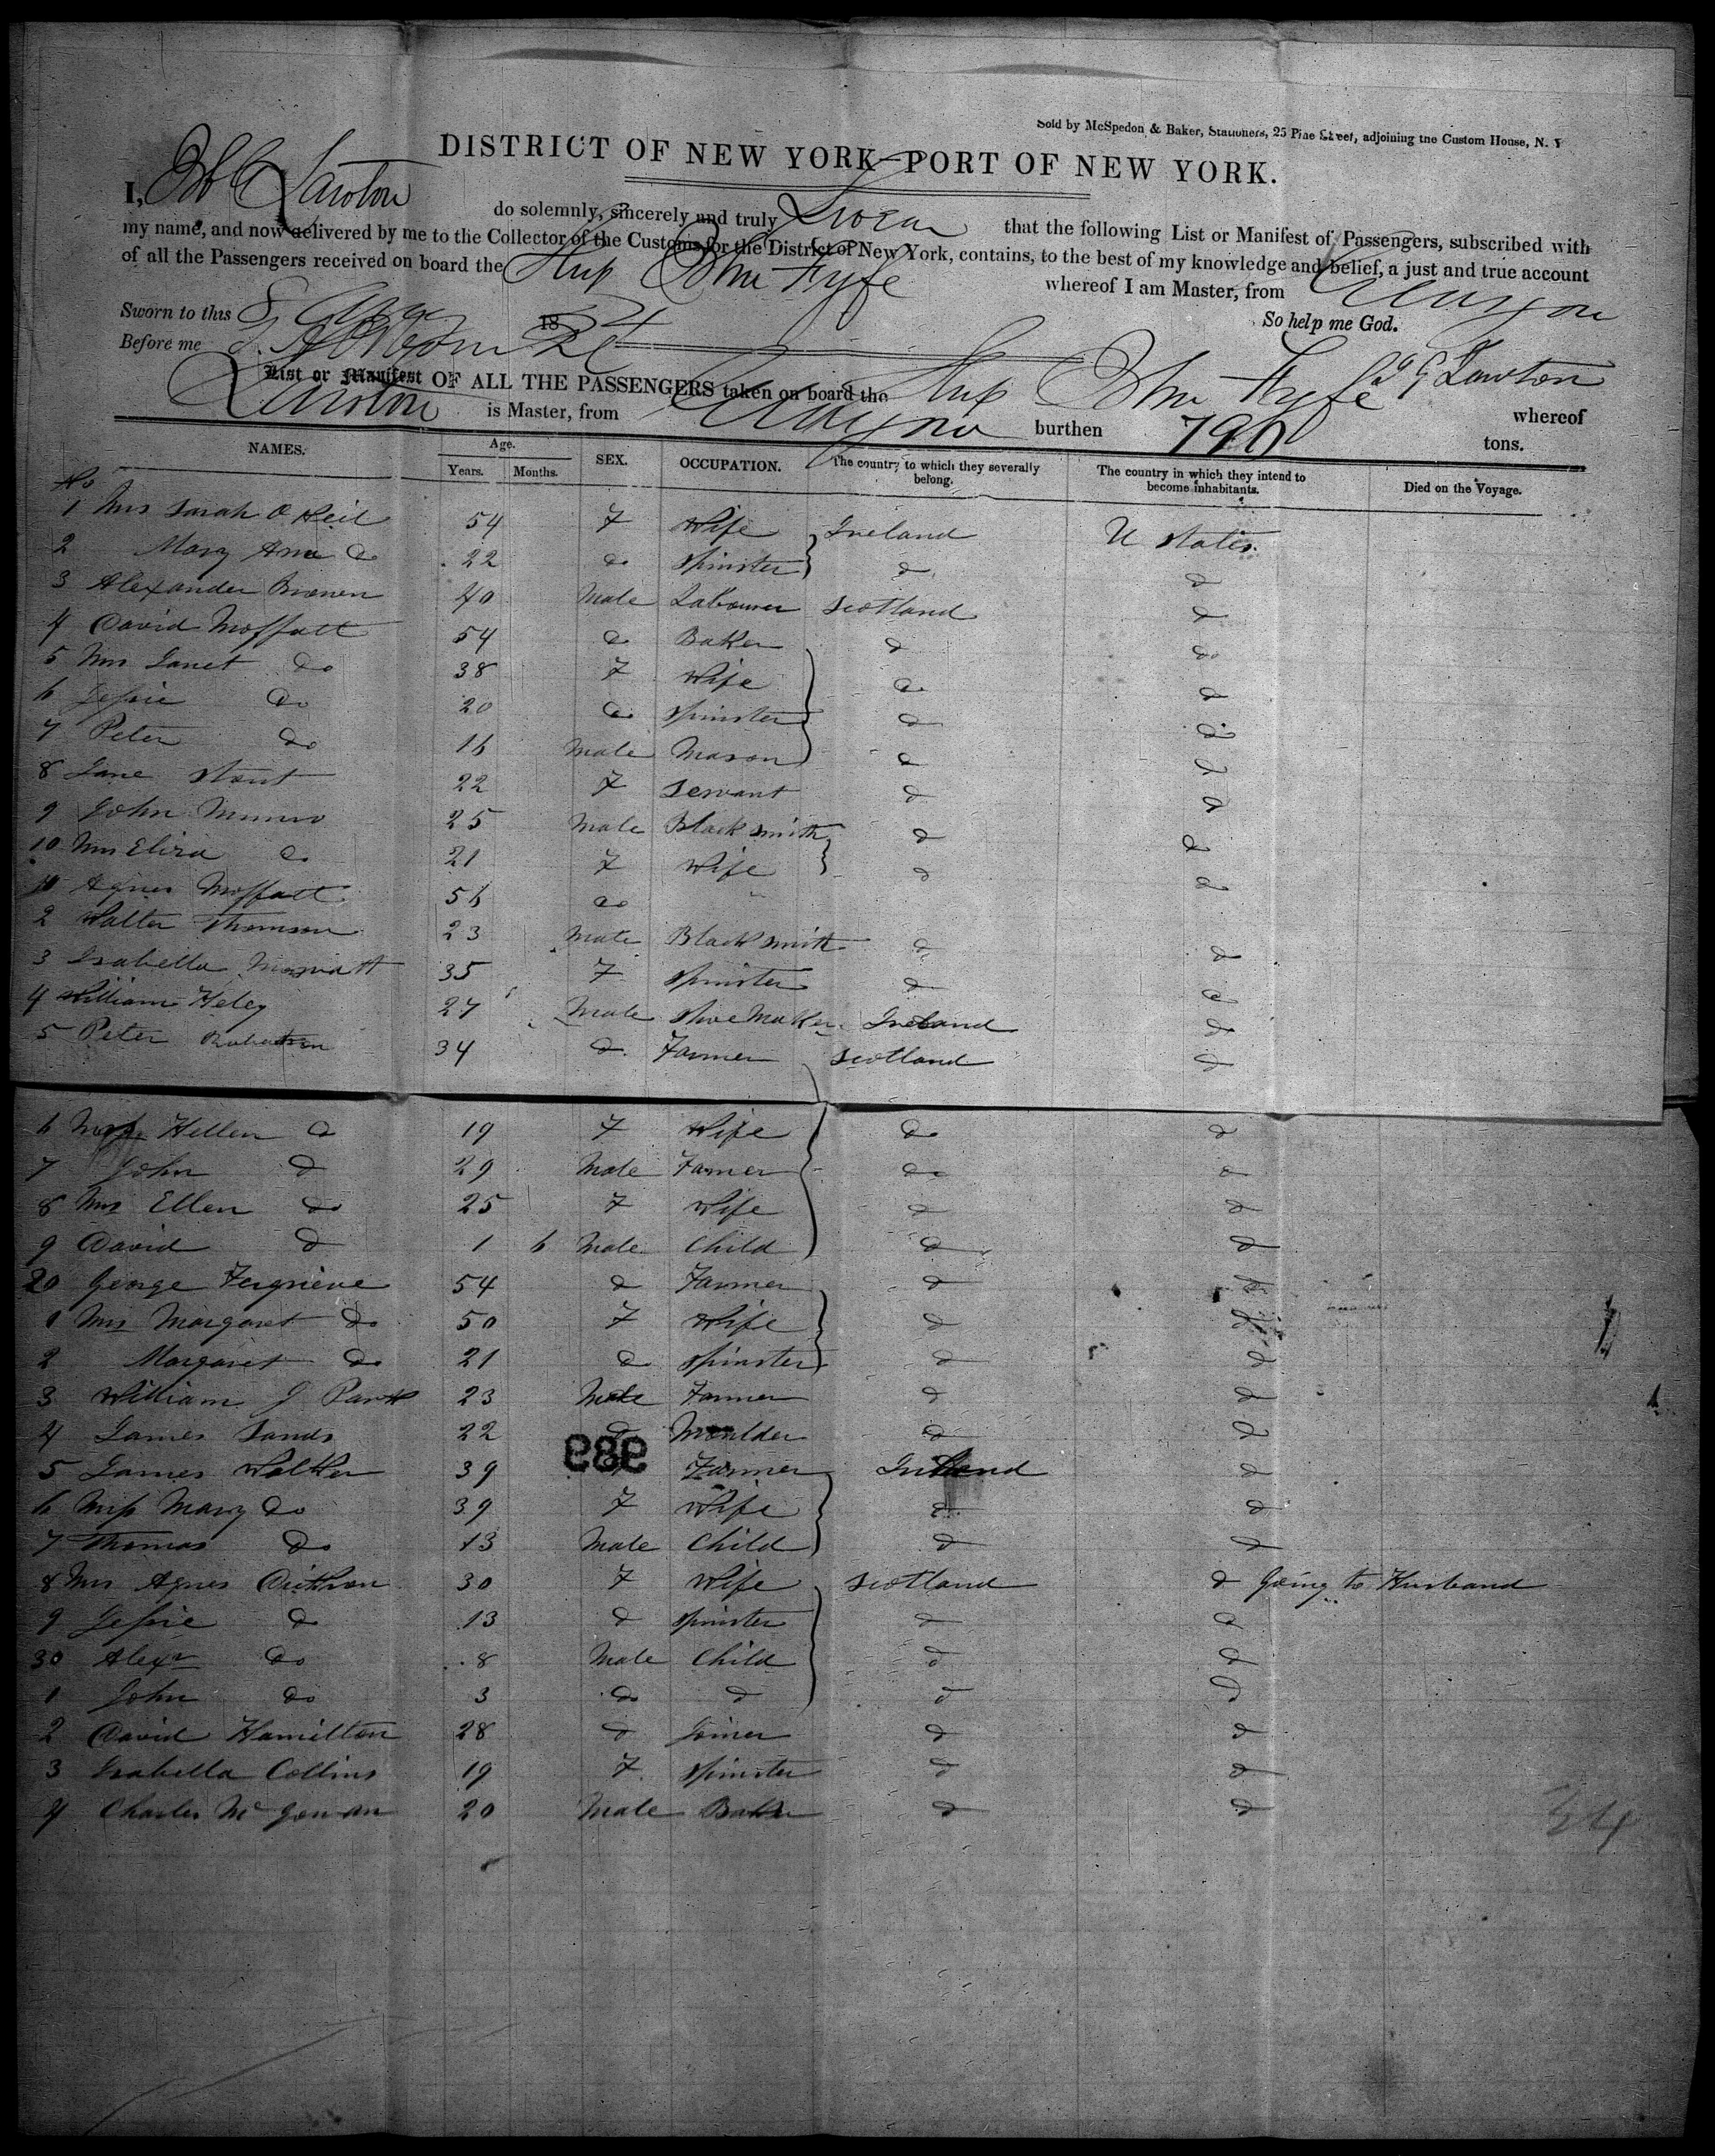 Sold by McSpedon & Baker, Stationers, 25 Pine Street, adjoining the Custom House, N. Y
DISTRICT OF NEW YORK—PORT OF NEW YORK.
I, Lawton do solemnly, sincerely and truly Swear that the following List or Manifest of Passengers, subscribed with
my name, and now delivered by me to the Collector of the Customs for the District of New York, contains, to the best of my knowledge and belief, a just and true account
of all the Passengers received on board the Ship John Fyfe whereof I am Master, from Glasgow
Sworn to this 8 18 54 So help me God.
Before me
List or Manifest OF ALL THE PASSENGERS taken on board the Ship John Fyfe Lawton whereof
Lawton is Master, from Glasgow burthen 790 tons.
NAMES. Age. Years. Months. SEX. OCCUPATION. The country to which they severally belong. The country in which they intend to become inhabitants. Died on the Voyage.
No
1 Mrs Sarah O Neil 54 F Wife Ireland U States
2 Mary Ann do 22 do Spinster do do
3 Alexander Brown 40 Male Labourer Scotland do
4 David Moffatt 54 do Baker do do
5 Mrs Janet do 38 F Wife do do
6 Jessie do 20 do Spinster do do
7 Peter do 16 Male Mason do do
8 Jane Stout 22 F Servant do do
9 John Munro 25 Male Blacksmith do do
10 Mrs Eliza do 21 F Wife do do
Agnes Moffatt 56 do
2 Walter Thomson 23 Male Blacksmith do do
3 Isabella 35 F Spinster do do
4 William Heley 27 Male Shoe Maker Ireland do
5 Peter Robertson 34 do Farmer Scotland do
6 Mrs Hellen do 19 F Wife do do
7 John do 29 Male Farmer do do
8 Mrs Ellen do 25 F Wife do do
9 David do 1 6 Male Child do do
20 George Fergrieve 54 do Farmer do do
1 Mrs Margaret do 50 F Wife do do
2 Margaret do 21 do Spinster do do
3 William J Park 23 Male Farmer do do
4 James Sands 22 do Moulder do do
989
5 James Walker 39 Farmer Ireland do
6 Mrs Mary do 39 F Wife do do
7 Thomas do 13 Male Child do do
8 Mrs Agnes Dickson 30 F Wife Scotland do Going to Husband
9 Jessie do 13 do Spinster do do
30 Alexr do 8 Male Child do do
1 John do 3 do do do do
2 David Hamilton 28 do Joiner do do
3 Isabella Collins 19 F Spinster do do
4 Charles McGowan 20 Male Baker do do
34